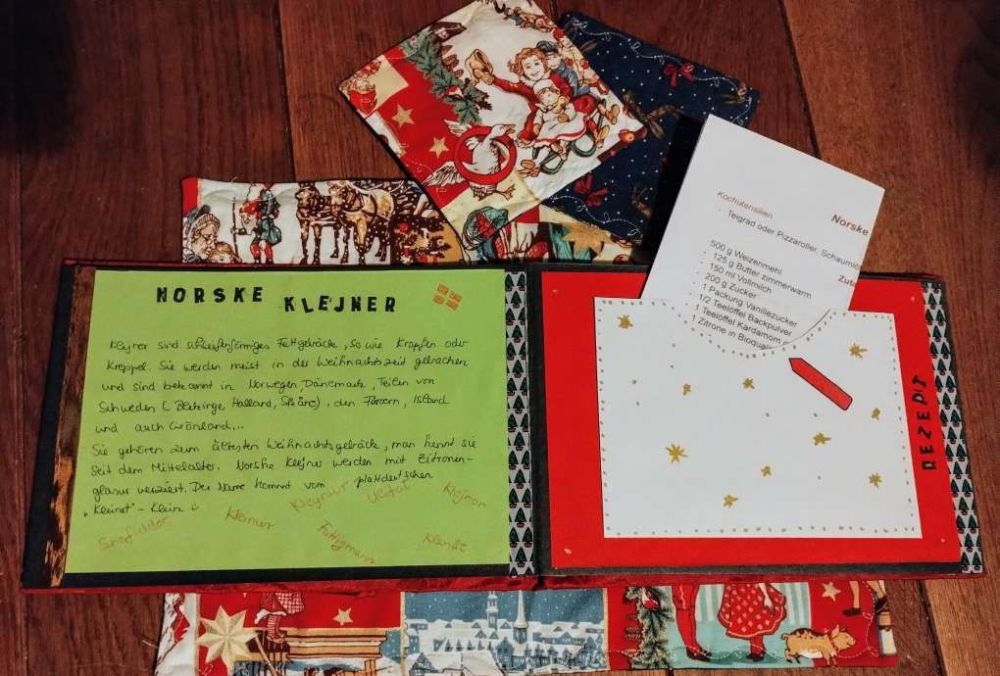 NORSKE KLEJNER
Klejner sind schleifenförmiges Fettgebäck, so wie Krapfen oder
Kreppel. Sie werden meist in der Weihnachtszeit gebacken
und sind bekannt in Norwegen Dänemark, Teilen von
Schweden (Blekinge Halland, Skåne), den Färöern, Island
und auch Grönland...
Sie gehören zum ältesten Weihnachtsgebäck, man kennt sie
seit dem Mittelalter. Norske Klejner werden mit Zitronen-
glasur verziert. Der Name kommt vom plattdeutschen
"Kleinet" - Klein
Kleynur
Klejner
Klenur
Fattigmann
Kochutensilien
Norske
- Teigrad oder Pizzaroller, Schaumlö
Zuta
500 g Weizenmehl
- 125 g Butter zimmerwarm
150 ml Vollmilch
- 200 g Zucker
- 1 Packung Vanillezucker
- 1/2 Teelöffel Backpulver
- 1 Teelöffel Kardamom
- 1 Zitrone in Bioqual
REZEPT